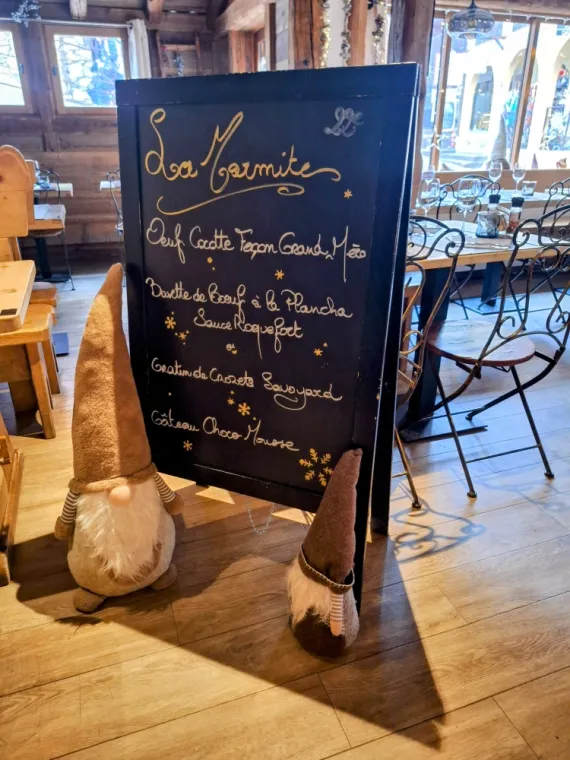 La Marmite
22€
Oeuf Cocotte Façon Grand-Mère
Bavette de Boeuf à la Plancha
Sauce Roquefort
ou
Gratin de Crozets Savoyard
Gâteau Choco Mousse